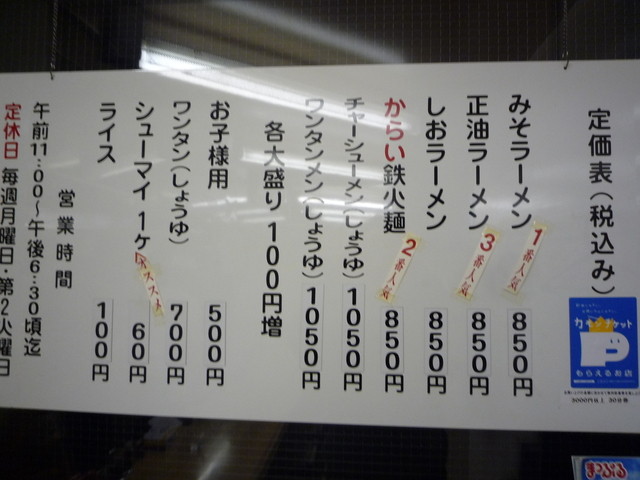 定価表(税込み)
みそラーメン 850円
1番人気
正油ラーメン 850円
3番人気
しおラーメン 850円
からい鉄火麺 850円
2番人気
チャーシューメン(しょうゆ) 1050円
ワンタンメン(しょうゆ) 1050円
各大盛り 100円増
お子様用 500円
ワンタン(しょうゆ) 700円
シューマイ 1ヶ 60円
オススメ
ライス 100円
営業時間
午前11:00~午後6:30頃迄
定休日 毎週月曜日・第2火曜日
カモンチケット
P
もらえるお店
まっぷる